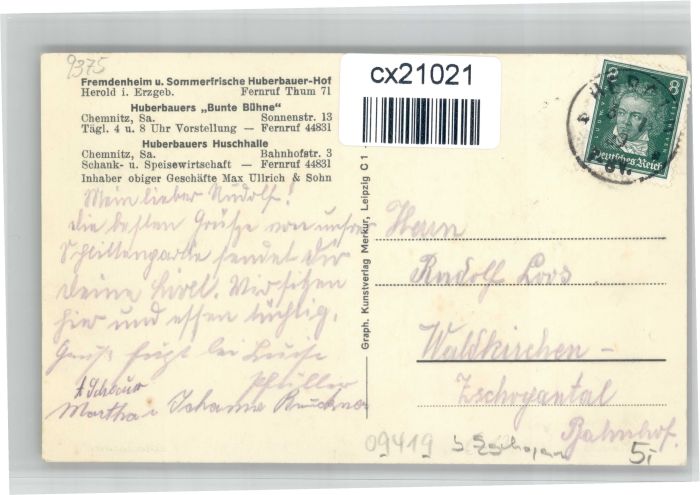 9375
Fremdenheim u. Sommerfrische Huberbauer-Hof
Herold i. Erzgeb. Fernruf Thum 71
Huberbauers „Bunte Bühne"
Chemnitz, Sa. Sonnenstr. 13
Tägl. 4 u. 8 Uhr Vorstellung — Fernruf 44831
Huberbauers Huschhalle
Chemnitz, Sa. Bahnhofstr. 3
Schank- u. Speisewirtschaft — Fernruf 44831
Inhaber obiger Geschäfte Max Ullrich & Sohn
Mein lieber Rudolf!
die besten Grüße von unserer
Schlittenparthe sendet dir
deine Wir sitzen
hier und essen tüchtig.
Gruß bei Luise
Martha Johanna
Graph. Kunstverlag Merkur, Leipzig C 1
cx21021
8 8
Deutsches Reich
Herrn
Rudolf Loos
Waldkirchen -
Zschopautal
Bahnhof.
09419
5,-